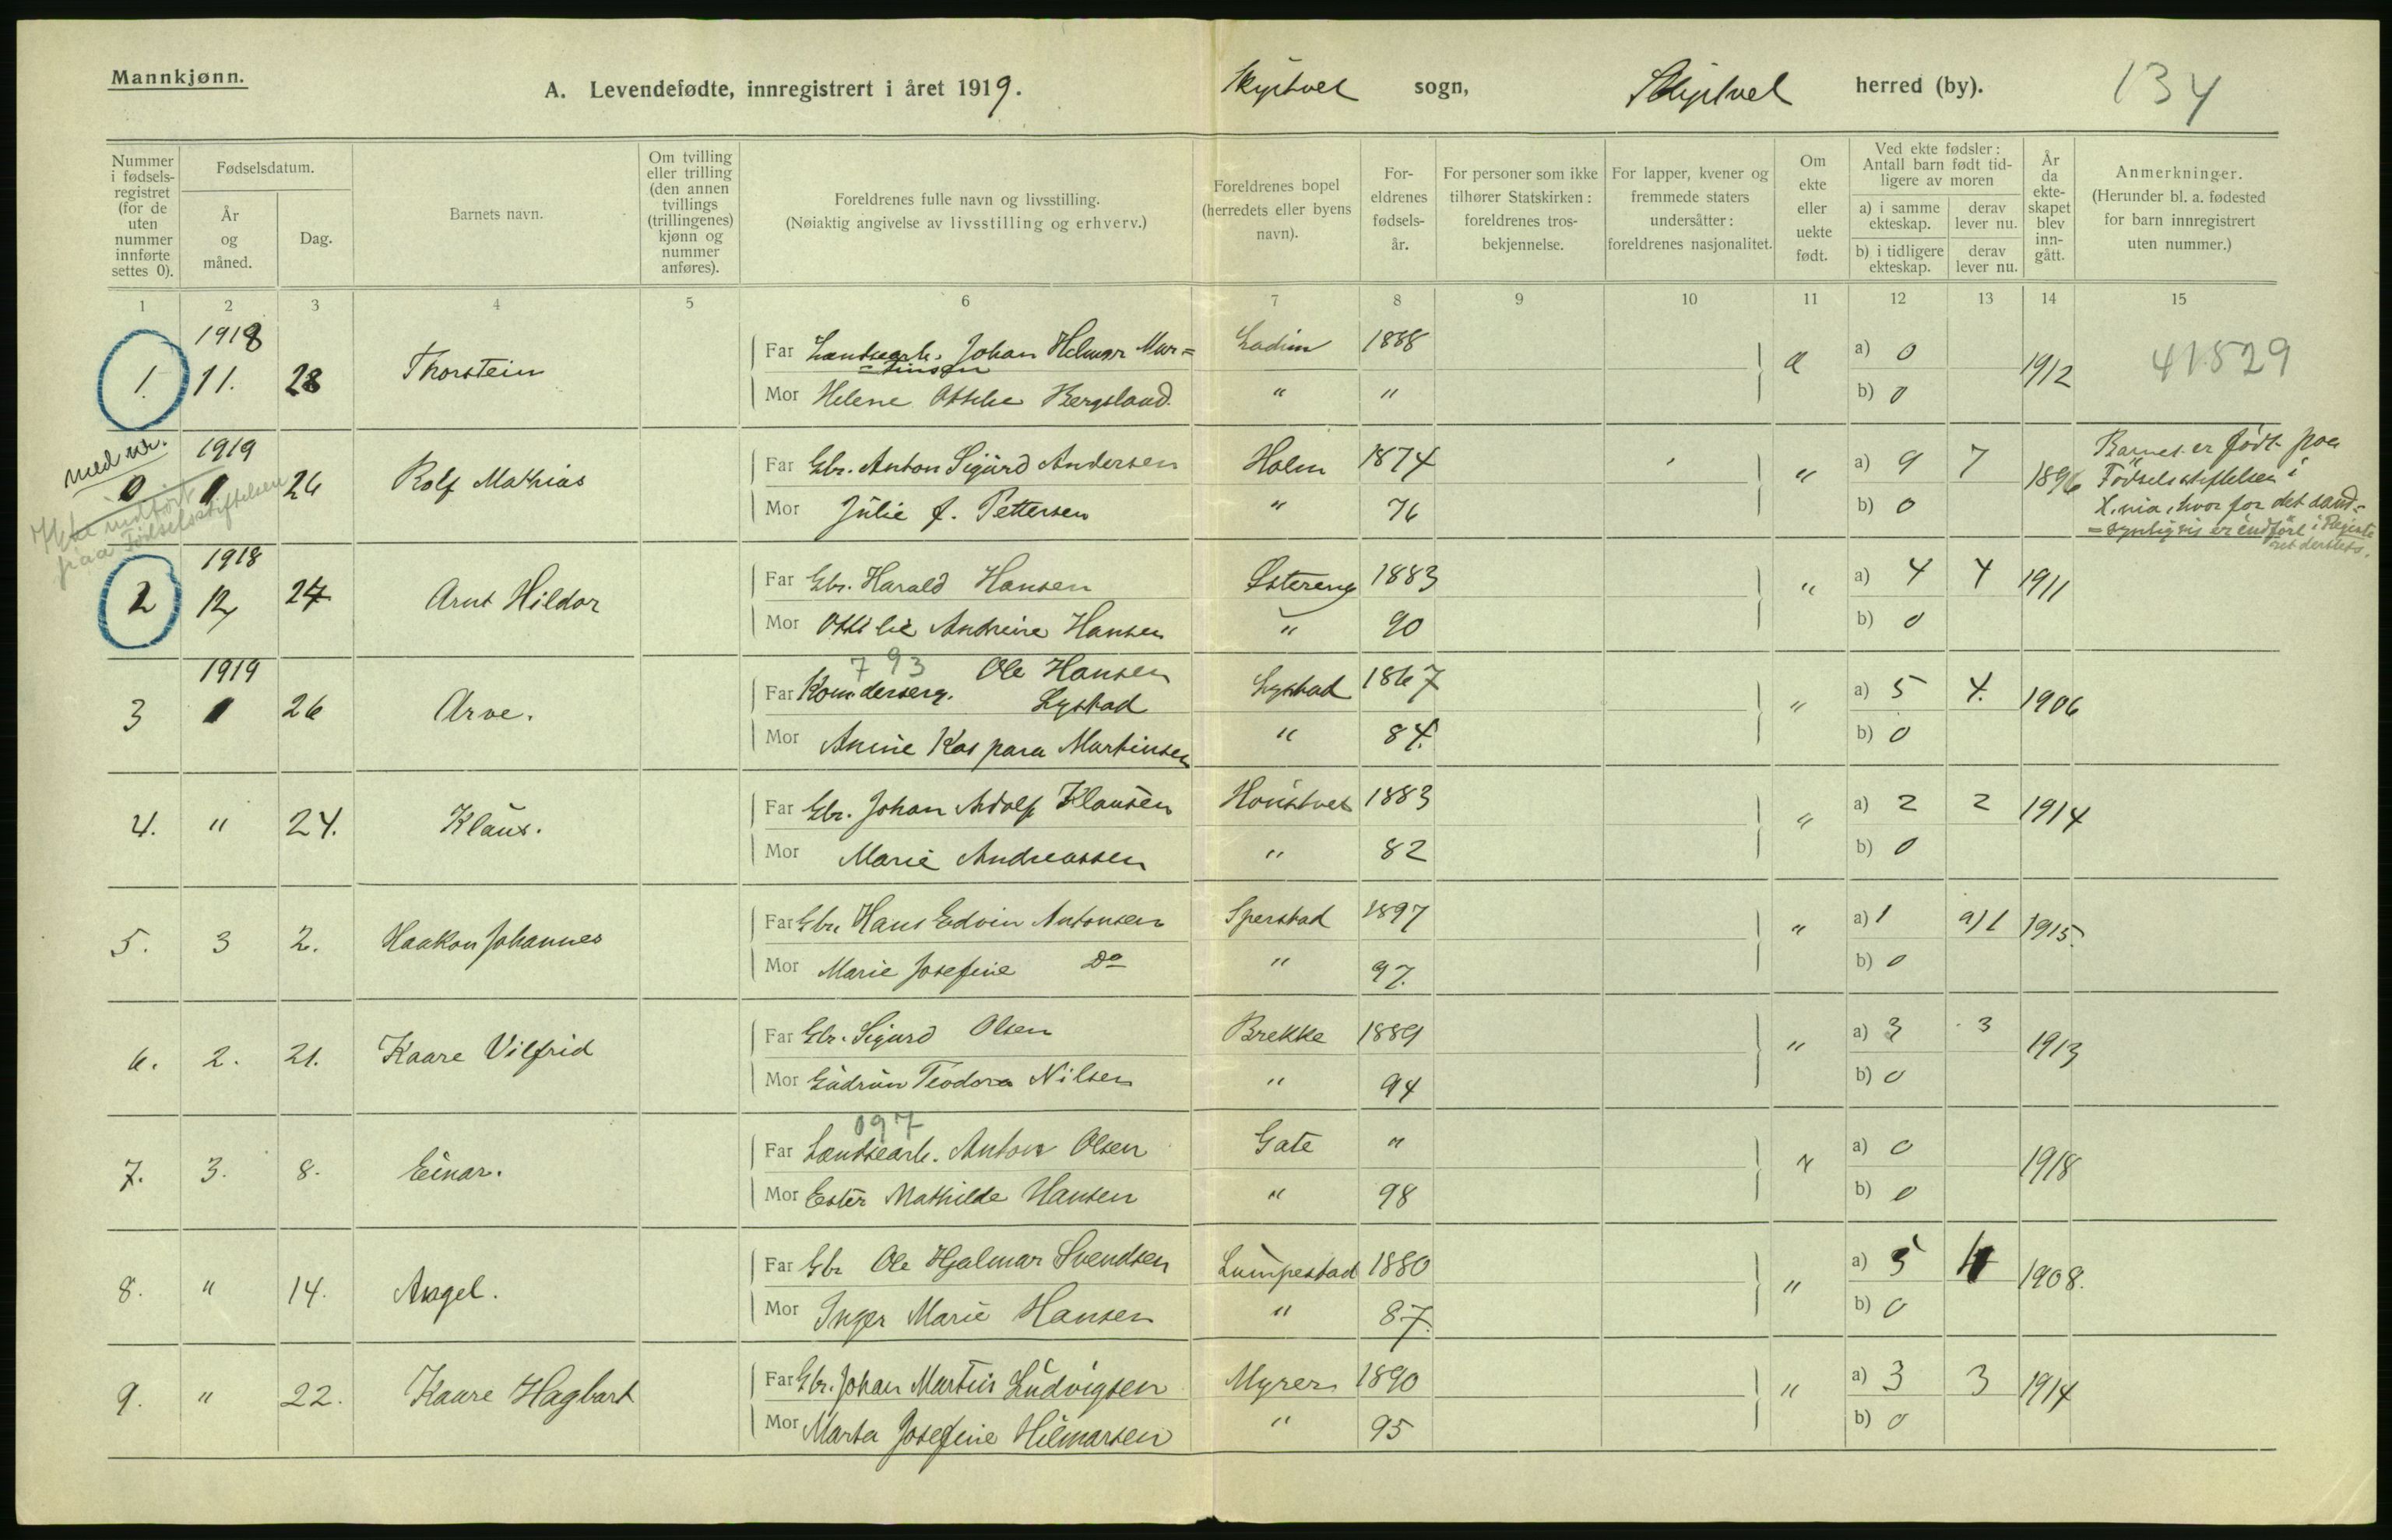 Mannkjønn.
A. Levendefødte, innregistrert i året 1919.
Skiptvet sogn, Skiptvet herred (by). 134
Nummer i fødselsregistret (for de uten nummer innførte settes 0).
Fødselsdatum.
År og måned.
Dag.
Barnets navn.
Om tvilling eller trilling (den annen tvillings (trillingenes) kjønn og nummer anføres).
Foreldrenes fulle navn og livsstilling.
(Nøiaktig angivelse av livsstilling og erhverv.)
Foreldrenes bopel (herredets eller byens navn).
Foreldrenes fødselsår.
For personer som ikke tilhører Statskirken: foreldrenes trosbekjennelse.
For lapper, kvener og fremmede staters undersåtter: foreldrenes nasjonalitet.
Om ekte eller uekte født.
Ved ekte fødsler: Antall barn født tidligere av moren
a) i samme ekteskap. derav lever nu.
b) i tidligere ekteskap. derav lever nu.
År da ekteskapet blev inngått.
Anmerkninger.
(Herunder bl. a. fødested for barn innregistrert uten nummer.)
1 2 3 4 5 6 7 8 9 10 11 12 13 14 15
1918
1. 11. 28 Thorstein Far Landsearb. Johan Helmar Mar= 1888 a) 0 1912 41529
=tinsen
Mor Helene Bergsland " " b) 0
med nr. 1919
0 1 26 Rolf Mathias Far Gbr. Anton Sigurd Andersen Holm 1874 " a) 9 7 1896
Mor Julie f. Pettersen " 76 b) 0
Barnet er født paa
Fødselsstiftelsen i
X.nia, hvor for det sand=
=synligvis er indført i Registe
ret dersteds.
Ikke indført
fraa Fødselsstiftelsen
1918
2 12 27 Arnt Hildor Far Gbr. Harald Hansen Østereng 1883 " a) 4 4 1911
Mor Ottilie Andreine Hansen " 90 b) 0
1919 793 Ole Hansen
3 1 26 Arve. Far Lystad Lystad 1867 " a) 5 4. 1906
Mor Anine Kaspara Martinsen " 84. b) 0
4. " 24. Klaus. Far Gbr. Johan Adolf Klausen 1883 " a) 2 2 1914
Mor Marie Andreassen " 82 b) 0
5. 3 2. Haakon Johannes Far Gbr. Hans Edvin Antonsen Sperstad 1897 " a) 1 a) 1 1915.
Mor Marie Josefine Do " 97. b) 0
6. 2. 21. Kaare Vilfrid Far Gbr. Sigurd Olsen Brekke 1889 " a) 3 3 1913
Mor Gudrun Teodora Nilsen " 94 b) 0
097
7. 3. 8. Einar. Far Landsearb. Anton Olsen Gate " " a) 0 1918
Mor Ester Mathilde Hansen " 98 b) 0
8. " 14. Angel. Far Gbr Ole Hjalmar Svendsen Lumpestad 1880 " a) 5 4 1908.
Mor Inger Marie Hansen " 87. b) 0
9. " 22. Kaare Hagbart Far Gbr. Johan Martin Ludvigsen Myrer 1890 " a) 3 3 1914
Mor Marta Josefine Hilmarsen " 95 b) 0